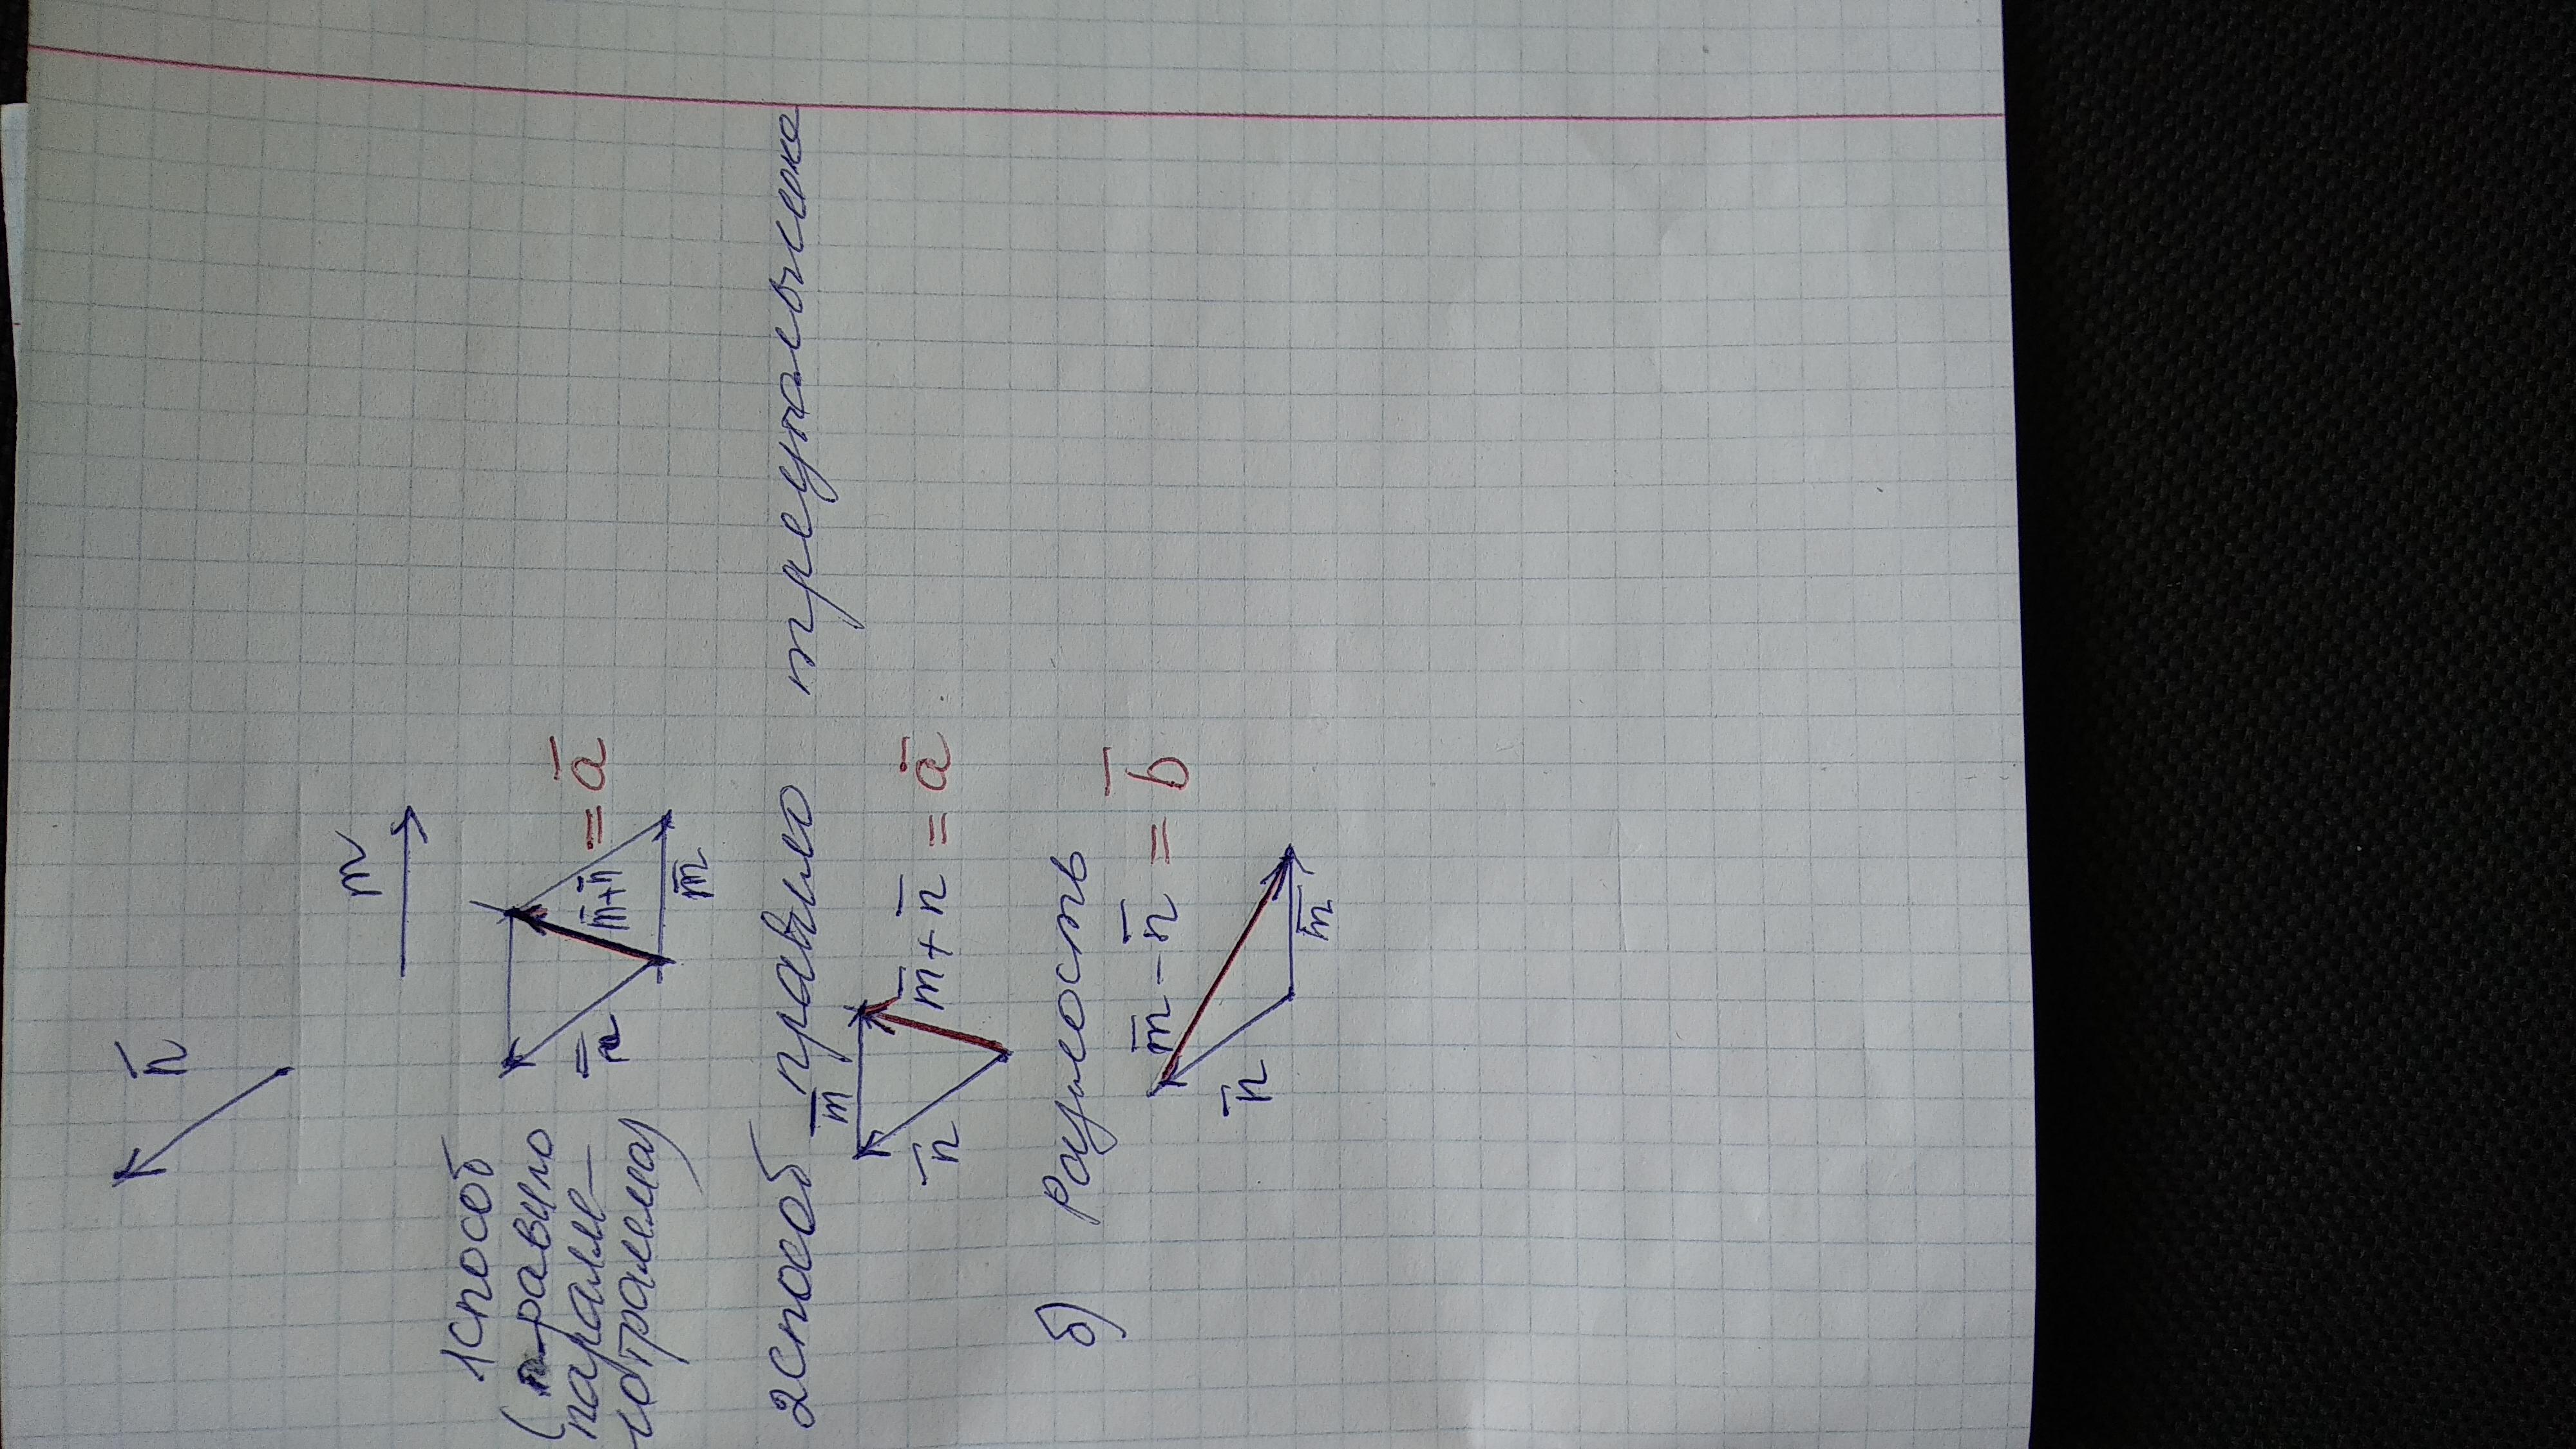 n̅
m
1 способ
(правило
паралле-
лограмма)
m̅+n̅ = a̅
n̅
m̅
2 способ правило треугольника
m̅
m̅+n̅ = a̅
n̅
б) Разность
m̅-n̅ = b̅
n̅
m̅